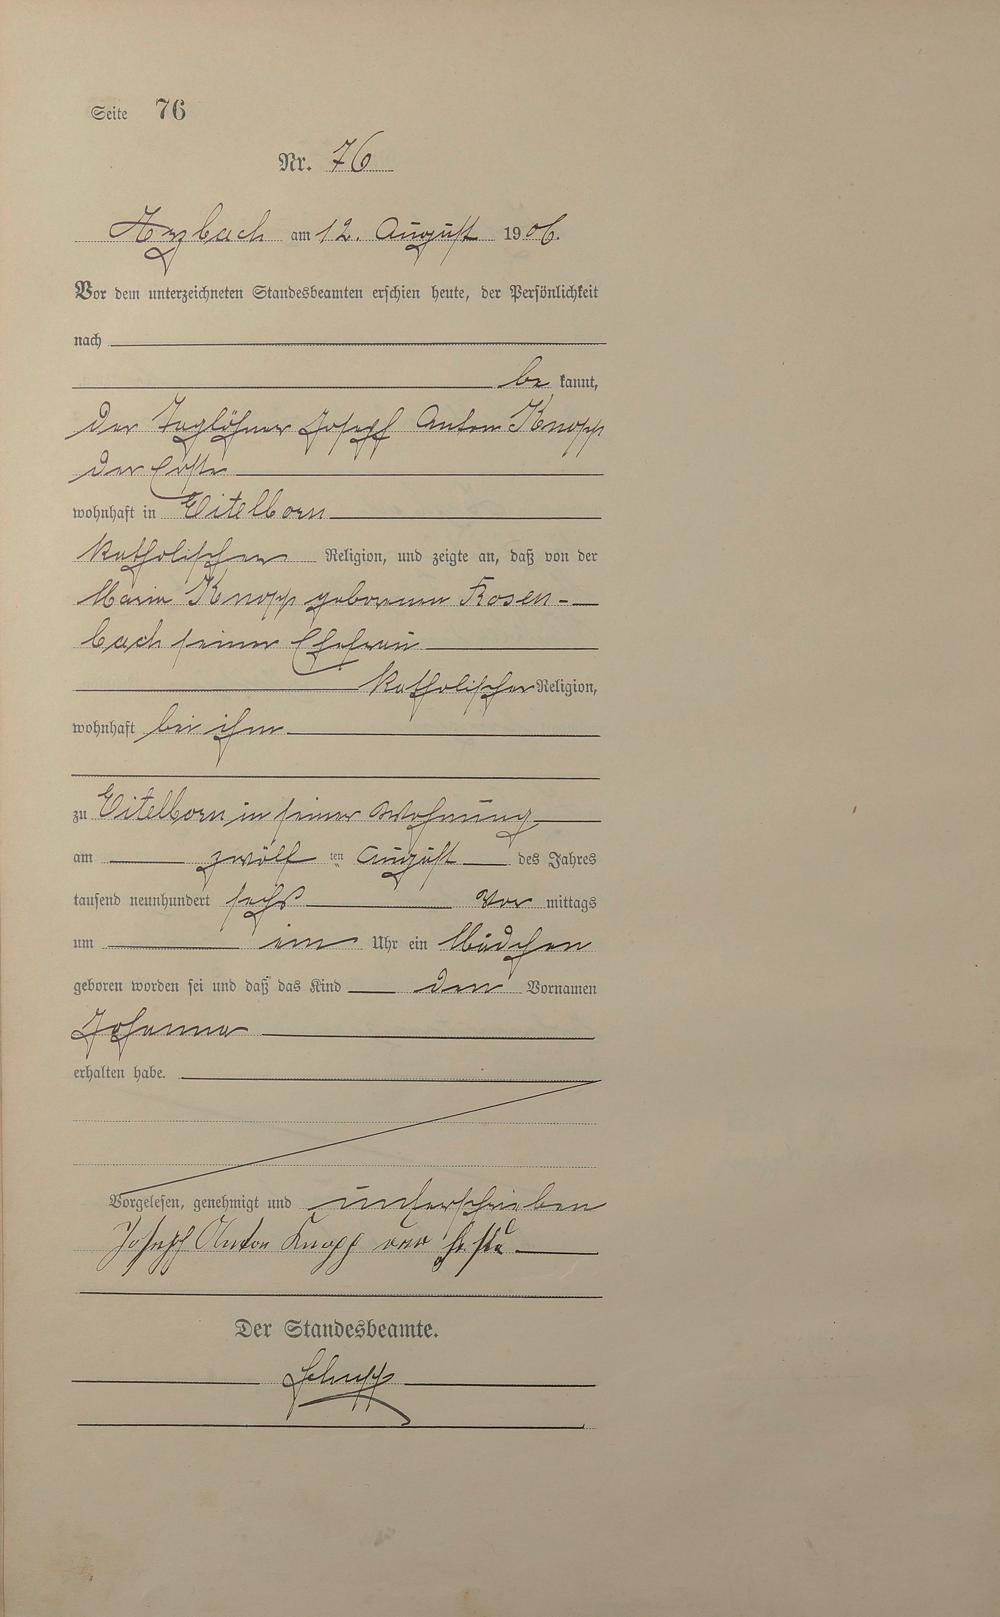 Seite 76
Nr. 76
Arzbach am 12. August 1906.
Vor dem unterzeichneten Standesbeamten erschien heute, der Persönlichkeit
nach
be kannt,
der Taglöhner Joseph Anton Knopp
der Erste
wohnhaft in Eitelborn
katholischer Religion, und zeigte an, daß von der
Maria Knopp geborenen Rosen-
bach seiner Ehefrau
katholischer Religion,
wohnhaft bei ihm
zu Eitelborn in seiner Wohnung
am zwölf ten August des Jahres
tausend neunhundert sechs Vor mittags
um ein Uhr ein Mädchen
geboren worden sei und daß das Kind den Vornamen
Johanna
erhalten habe.
Vorgelesen, genehmigt und unterschrieben
Joseph Anton Knopp
Der Standesbeamte.
Schupp